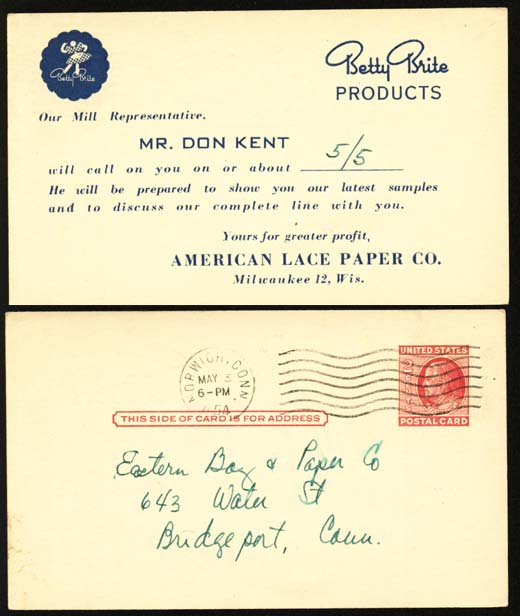 Betty Brite
Betty Brite
PRODUCTS
Our Mill Representative,
MR. DON KENT
will call on you on or about 5/5
He will be prepared to show you our latest samples
and to discuss our complete line with you.
Yours for greater profit,
AMERICAN LACE PAPER CO.
Milwaukee 12, Wis.
NORWICH, CONN.
MAY 3
6-PM
1954
UNITED STATES
POSTAL CARD
THIS SIDE OF CARD IS FOR ADDRESS
Eastern Bag & Paper Co
643 Water St
Bridgeport, Conn.